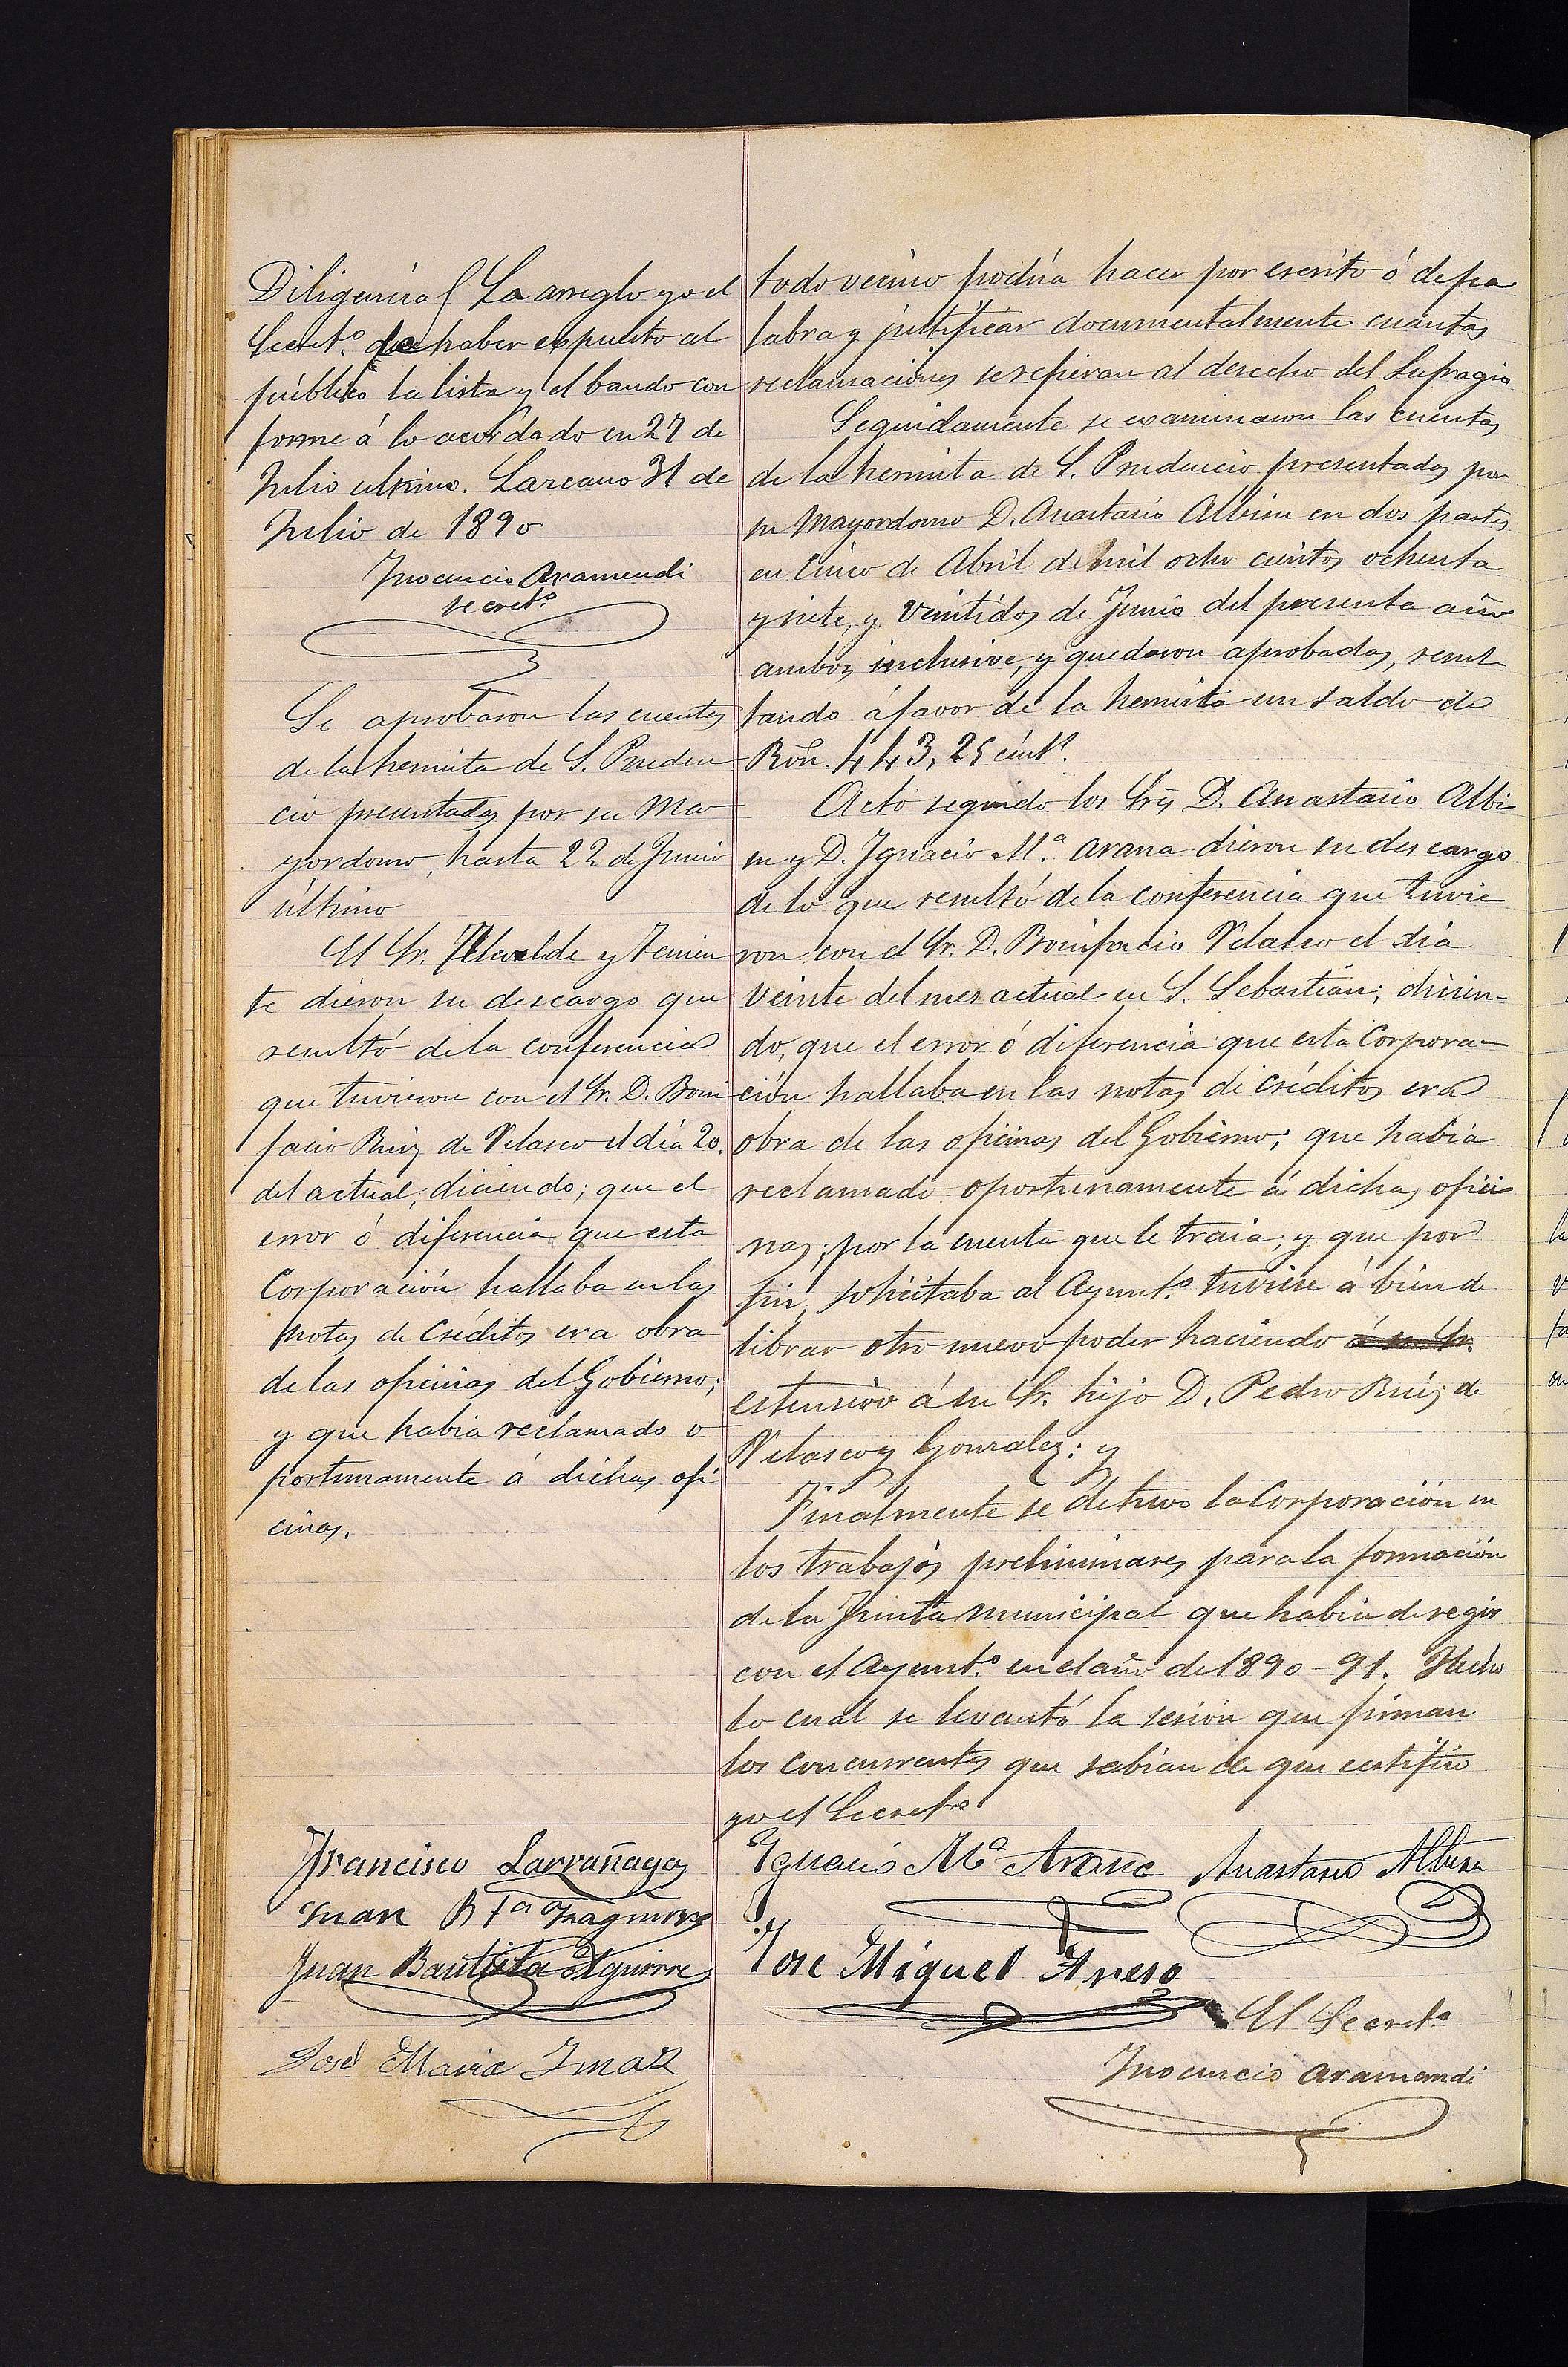 Diligencia { La arreglo yo el
Secret.º de haber espuesto al
público la lista y el bando con
forme á lo acordado en 27 de
Julio ultimo. Lazcano 31 de
Julio de 1890
Inocencio Aramendi
secret.º
Se aprobaron las cuentas
de la hermita de S. Pruden
cio presentadas por su Ma
yordomo, hasta 22 de Junio
último
El Sr. Alcalde y Tenien
te dieron su descargo que
resultó de la conferencia
que tuvieron con el Sr. D. Boni
facio Ruiz de Velasco el día 20.
del actual; diciendo; que el
error ó diferencia que esta
Corporación hallaba en las
notas de Créditos era obra
de las oficinas del Gobierno;
y que habia reclamado o
portunamente á dichas ofi
cinas.
todo vecino podría hacer por escrito ó de pa
labra y justificar documentalmente cuantas
reclamaciones se refieran al derecho del Sufragio
Seguidamente se examinaron las cuentas
de la hermita de S. Prudencio presentadas por
su Mayordomo D. Anastasio Albisu en dos partes
en Cinco de Abril de mil ocho cientos ochenta
y siete, y Veintidos de Junio del presente año
ambos inclusive, y quedaron aprobadas, resul
tando á favor de la hermita un saldo de
Rvn. 443,25 cent.ˢ
Acto seguido los Srs D. Anastasio Albi
su y D. Ignacio M.ª Arana dieron su descargo
de lo que resultó de la conferencia que tuvie
ron con el Sr. D. Bonifacio Velasco el dia
Veinte del mes actual en S. Sebastián; dicien-
do, que el error ó diferencia que esta Corpora-
ción hallaba en las notas de créditos era
obra de las oficinas del Gobierno; que habia
reclamado oportunamente á dichas ofici
nas; por la cuenta que le traia; y que por
fin, solicitaba al Ayunt.º tuviese á bien de
librar otro nuevo poder haciendo á su Sr.
estensivo á su Sr. hijo D. Pedro Ruiz de
Velasco y Gonzalez: y
Finalmente se detuvo la Corporación en
los trabajos preliminares para la formación
de la Junta municipal que habia de regir
con el Ayunt.º en el año de 1890-91. Hecho
lo cual se levantó la sesión que firman
los concurrentes que sabian de que certifico
yo el Secret.º
Francisco Larrañaga
Ignacio Mª Arana Anastasio Albisu
Juan Bta
Juan Bautista Aguirre
José Miguel
El Secret.º
José Maria Imaz
Inocencio Aramendi